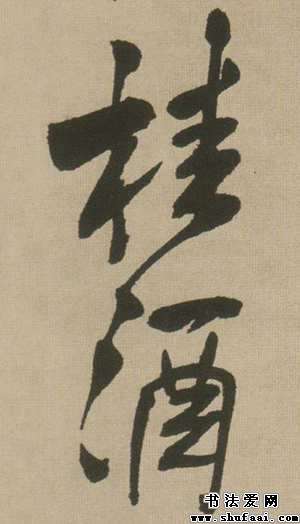 桂酒
书法爱网
www.shufaai.com